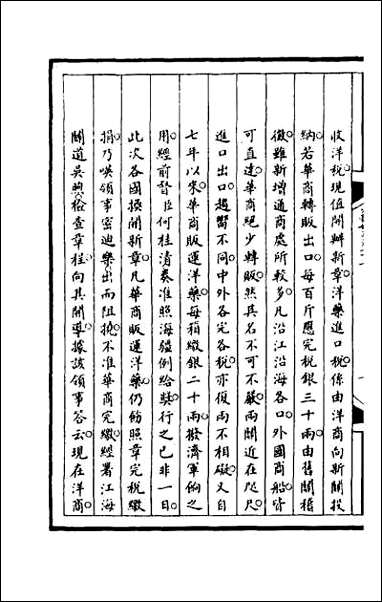 收洋稅現值開辦新章洋藥進口稅係由洋商向新關投
納若華商轉販出口每百斤應完稅銀三十兩由舊關稽
徵雖新增通商處所較多凡沿江沿海各口外國商船皆
可直達華商絕少轉販然其名不可不嚴兩關近在咫尺
進口出口趨嚮不同中外各完各稅亦復兩不相礙又自
七年以來華商販運洋藥每箱繳銀二十兩撥濟軍餉之
用經前督臣何桂清奏准照海疆例給獎行之已非一日
此次各國換開新章凡華商販運洋藥仍飭照章完稅繳
捐乃㖞領事密迪樂出而阻撓不准華商完繳經署江海
關道吳煦檢查章程向其開導據該領事答云現在洋商